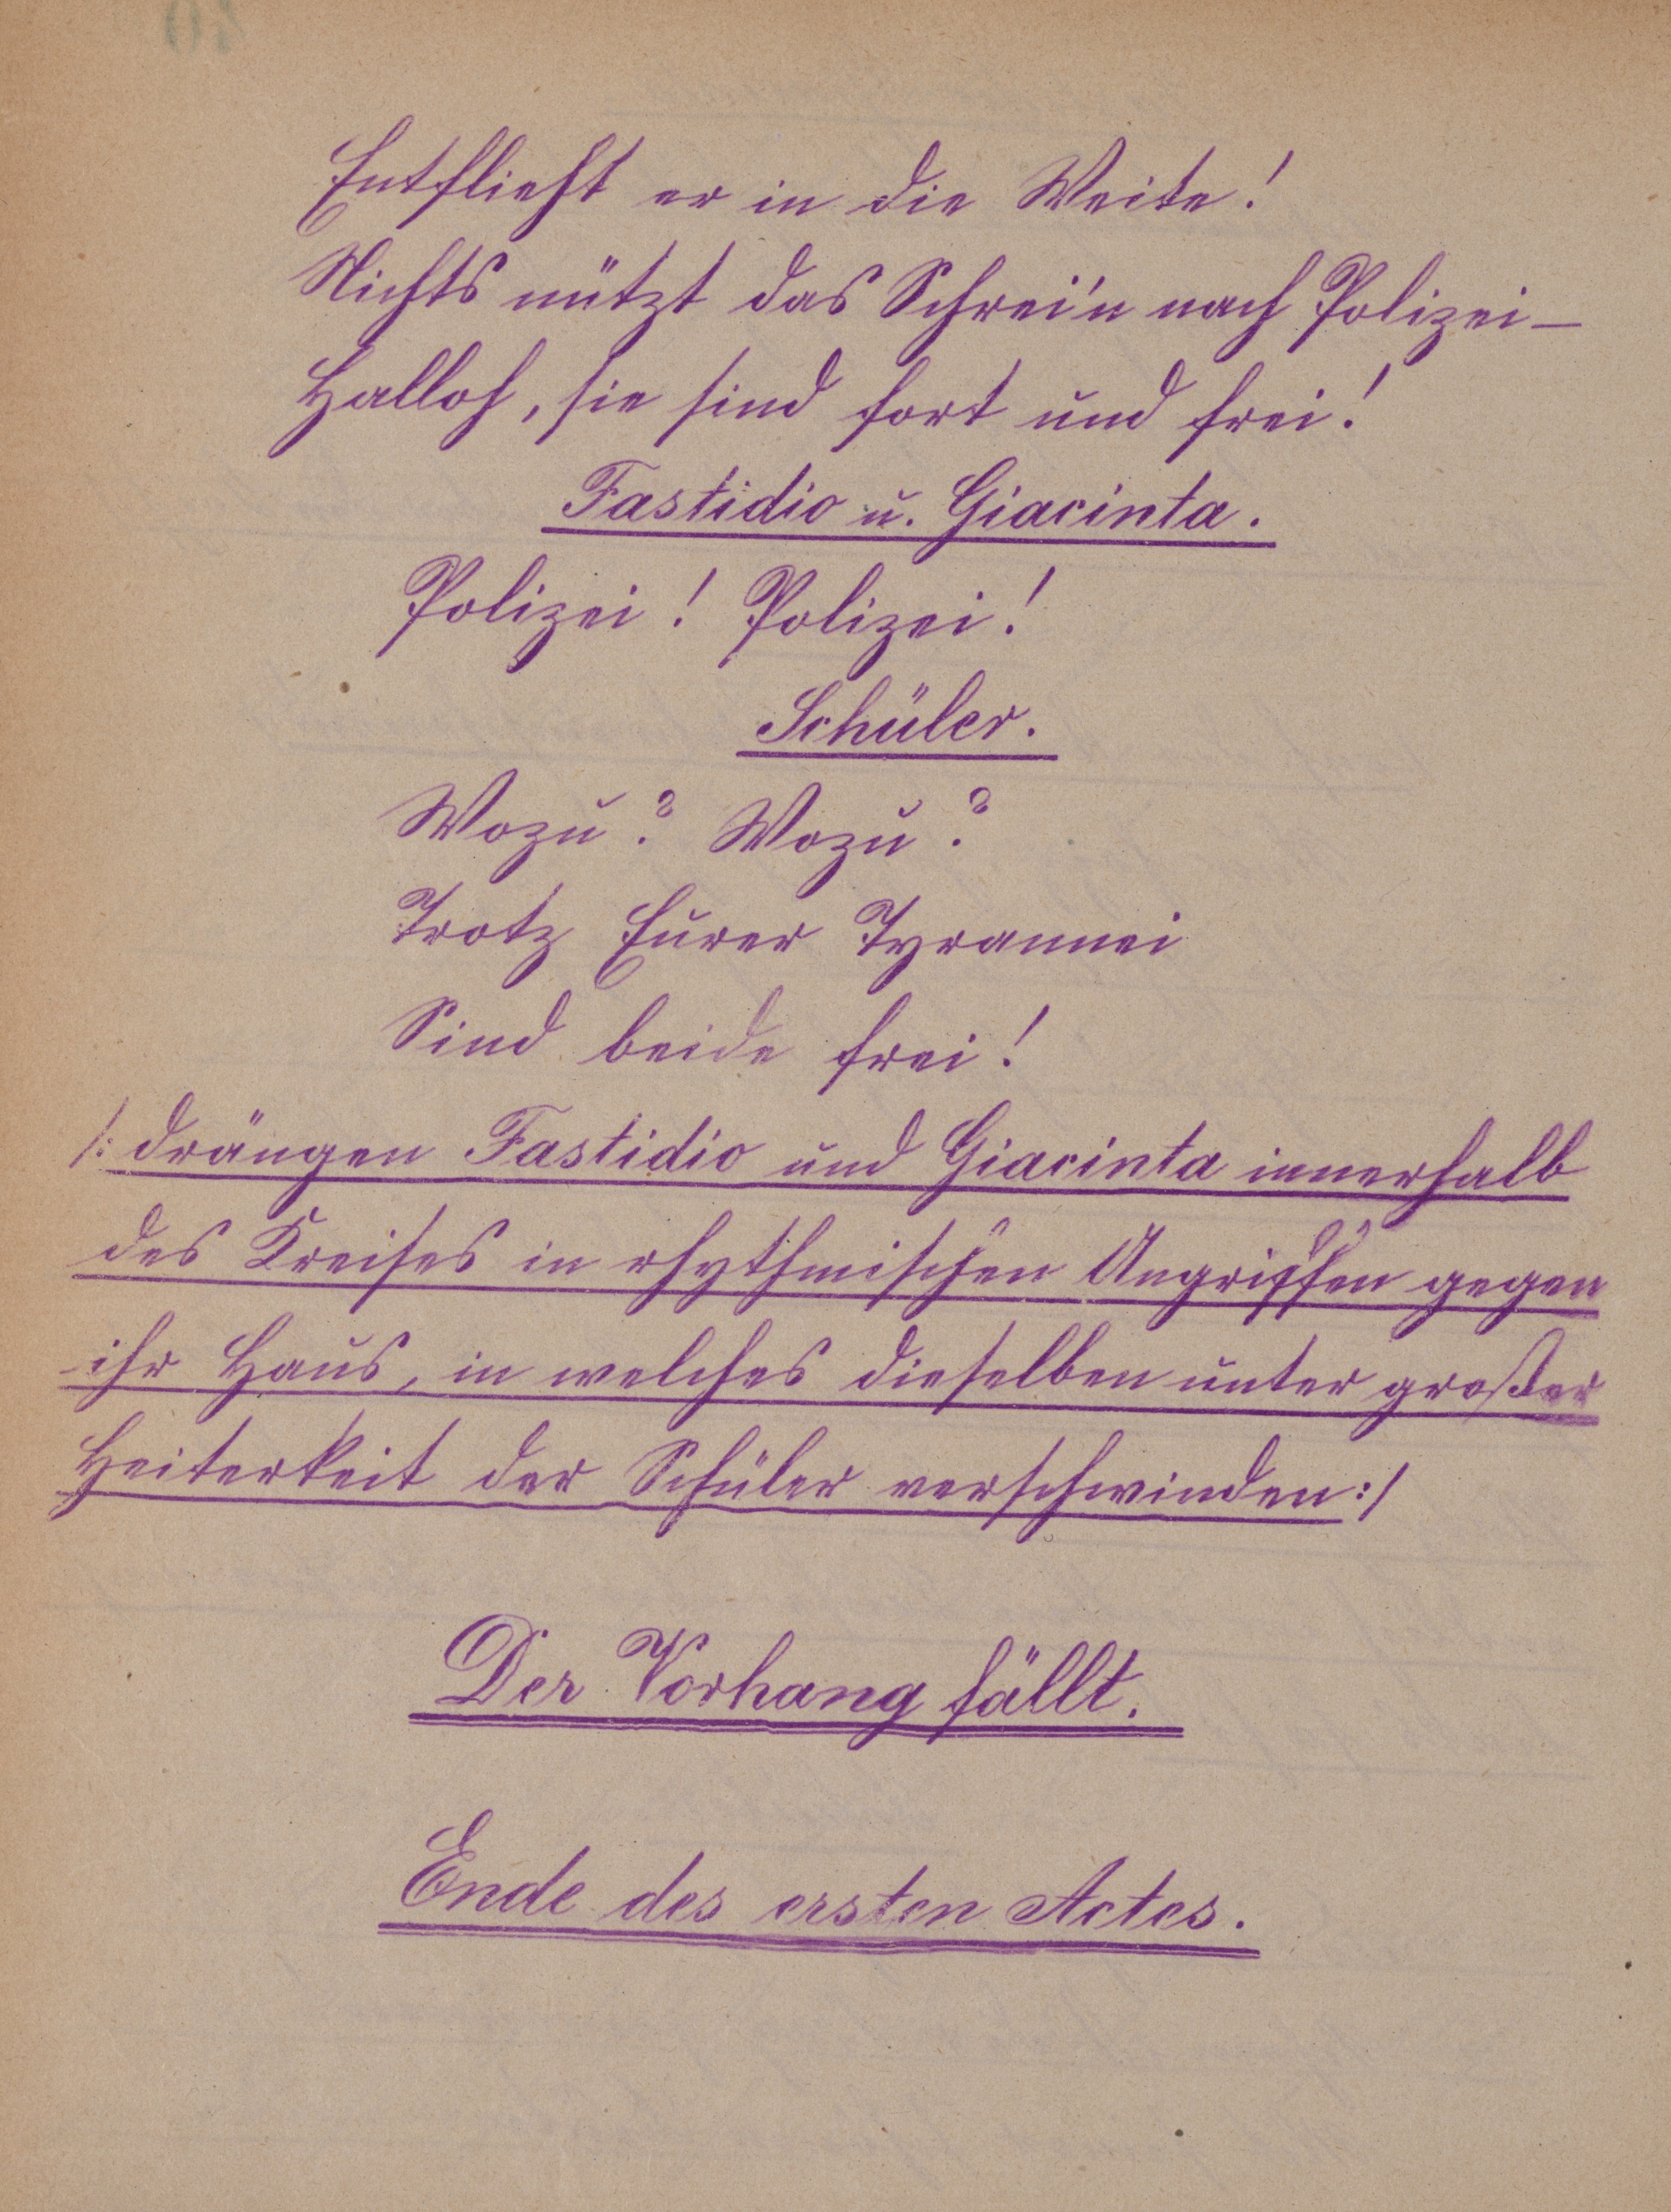 Entflieht er in die Weite!
Nichts nützt das Schrei'n nach Polizei—
Halloh, sie sind fort und frei!
Fastidio u. Giacinta.
Polizei! Polizei!
Schüler.
Wozu? Wozu?
Trotz Eurer Tyrannei
Sind beide frei!
/: drängen Fastidio und Giacinta innerhalb
des Kreises in rhythmischen Angriffen gegen
ihr Haus, in welches dieselben unter großer
Heiterkeit der Schüler verschwinden :/
Der Vorhang fällt.
Ende des ersten Actes.